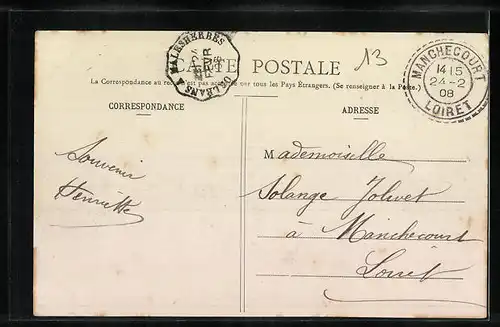 CARTE POSTALE
13
ORLEANS A MALESHERBES
FEVR
08
MANCHECOURT
14 15
24 -2
08
LOIRET
La Correspondance au recto n'est pas acceptée par tous les Pays Étrangers. (Se renseigner à la Poste.)
CORRESPONDANCE
ADRESSE
Souvenir
Henriette
Mademoiselle
Solange Jolivet
à Manchecourt
Loiret